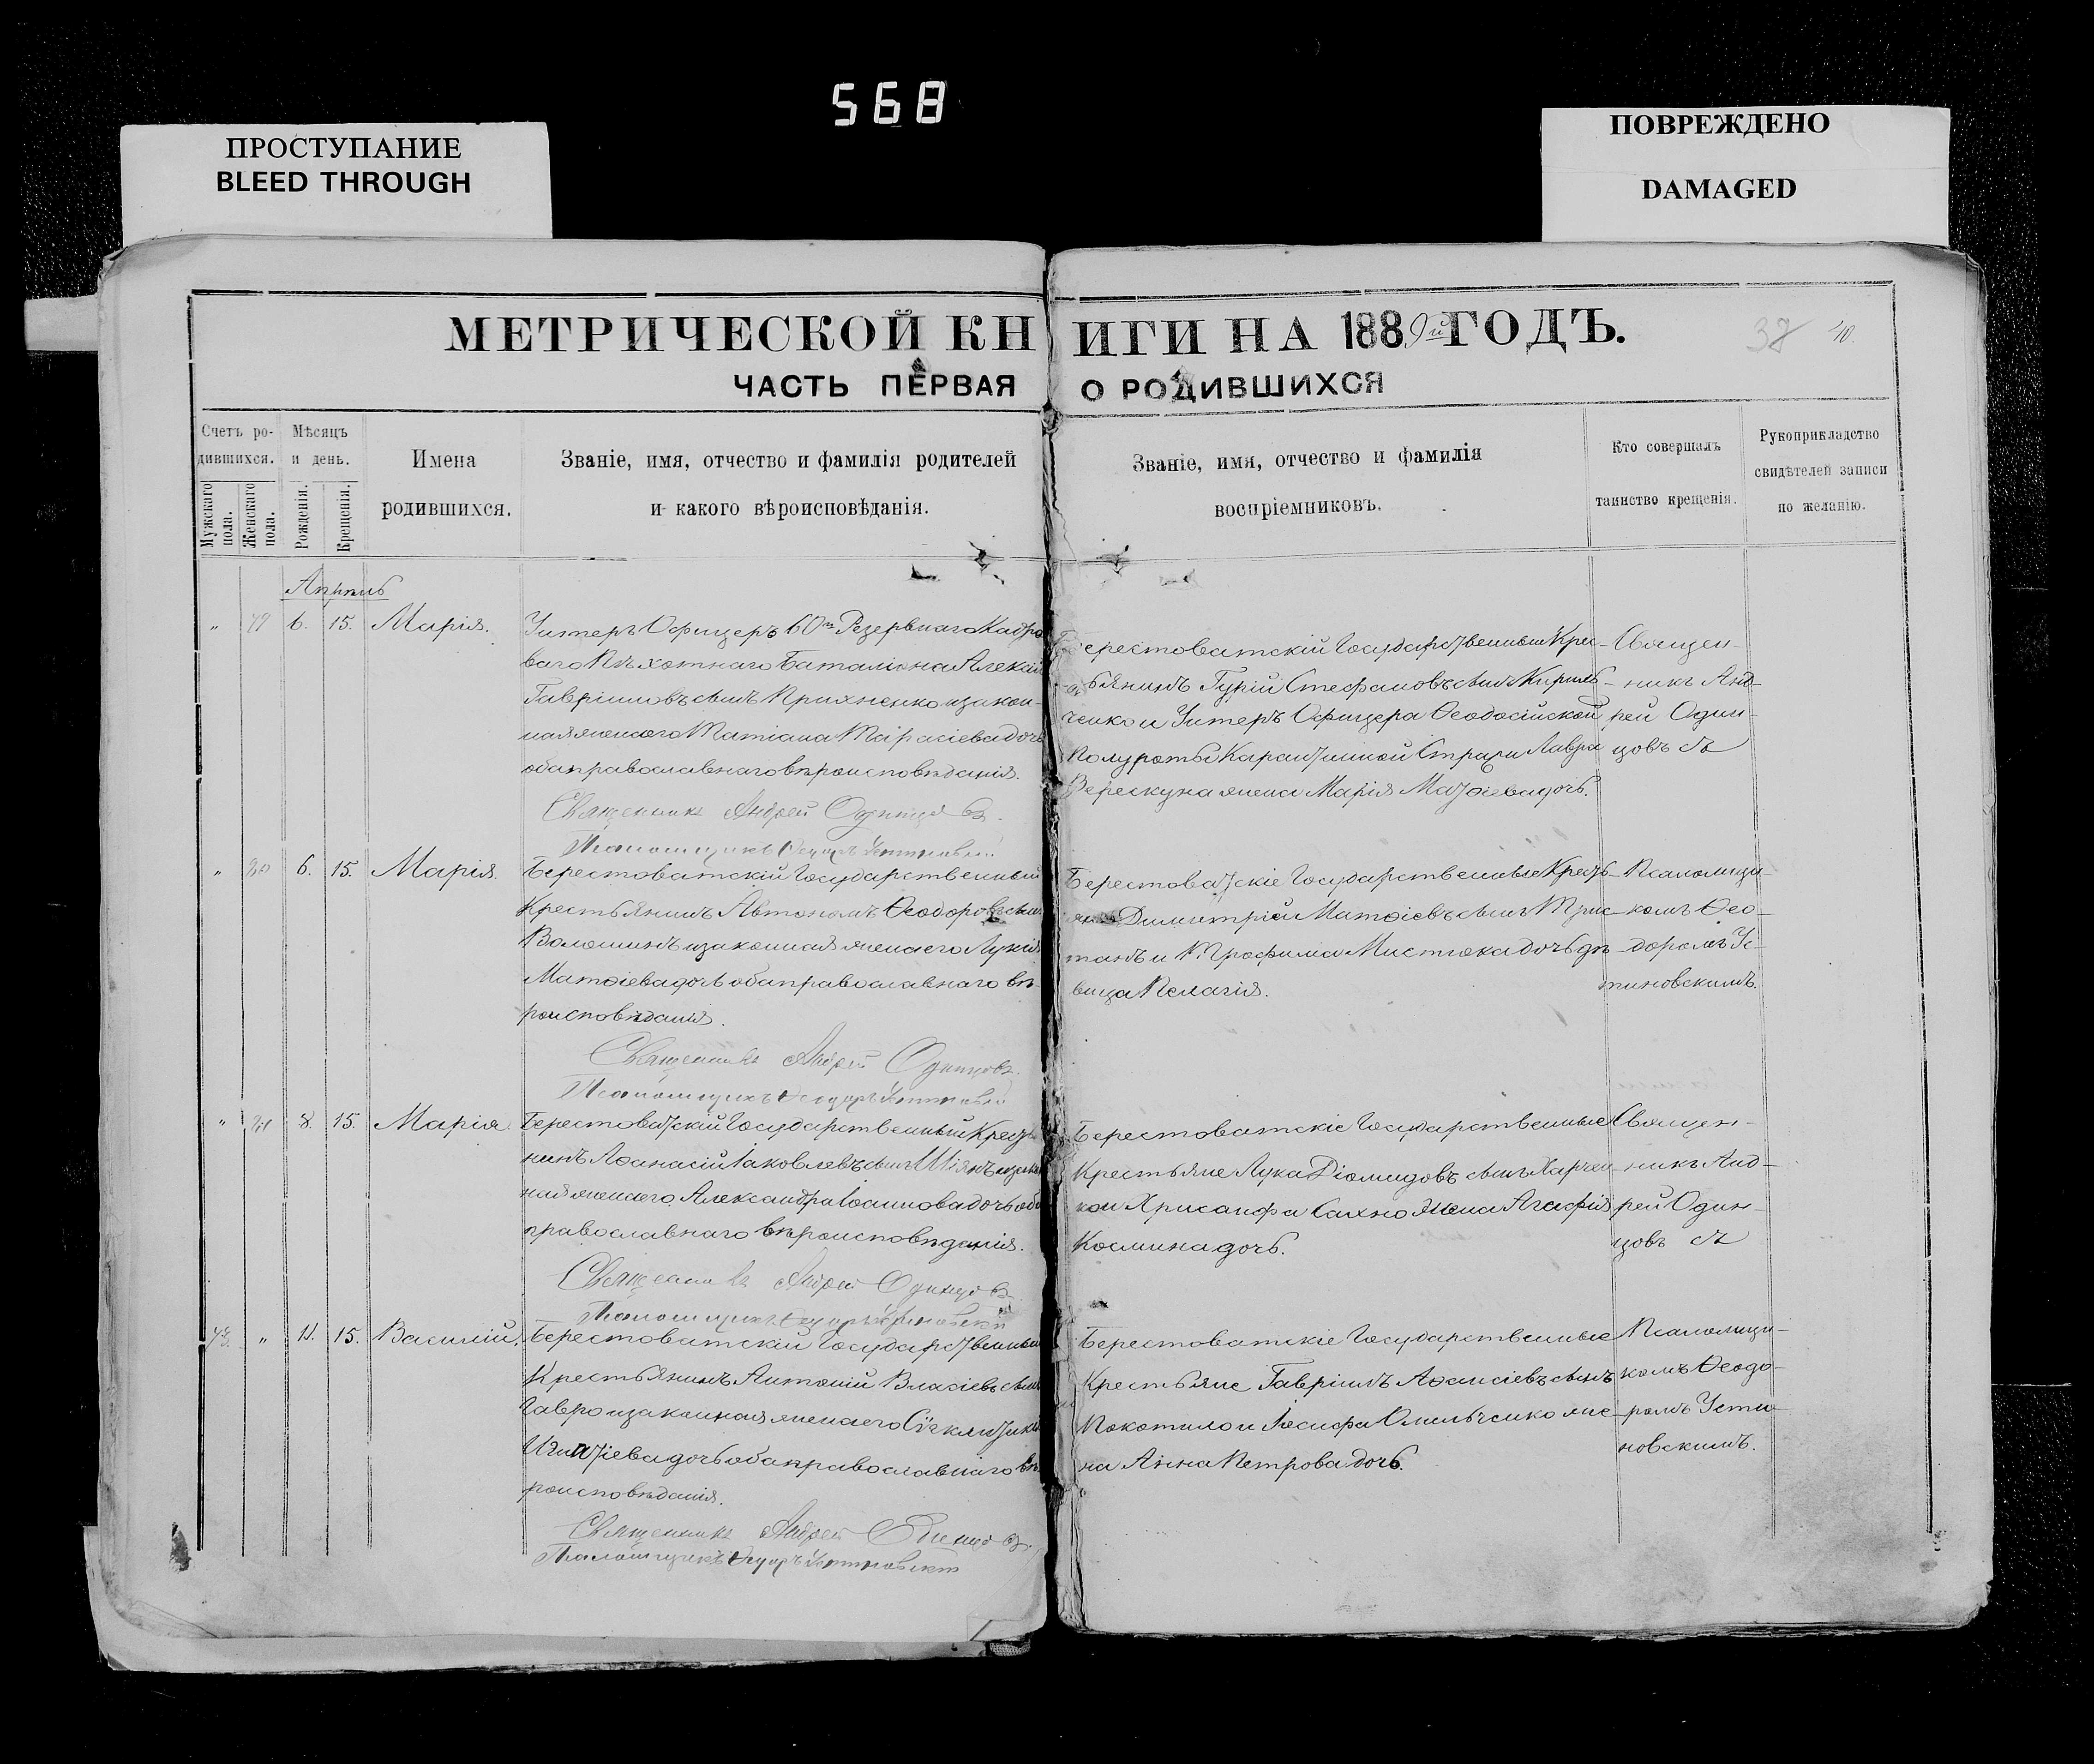 568
ПРОСТУПАНИЕ
BLEED THROUGH
ПОВРЕЖДЕНО
DAMAGED
МЕТРИЧЕСКОЙ КНИГИ НА 1889й ГОДЪ.
38 40.
ЧАСТЬ ПЕРВАЯ О РОДИВШИХСЯ
Счетъ ро-
дившихся.
Мужскаго пола.
Женскаго пола.
Мѣсяцъ
и день.
Рожденія.
Крещенія.
Имена
родившихся.
Званіе, имя, отчество и фамилія родителей
и какого вѣроисповѣданія.
Званіе, имя, отчество и фамилія
воспріемниковъ.
Кто совершалъ
таинство крещенія.
Рукоприкладство
свидѣтелей записи
по желанію.
Апрѣль
" 6. 15. Марія.
Унтеръ Офицеръ 60го Резервнаго Кадро
ваго Пѣхотнаго Баталіона Алексій
Гавріиловъ сынъ Прихненко и закон-
ная жена его Татіана Тарасіева дочь
оба православнаго вѣроисповѣданія.
Священникъ Андрей Одинцовъ.
Псаломщикъ Ѳеодоръ Устиновскій
Берестоватскій Государственный Крес-
тьянинъ Гурій Стефановъ сынъ Кириль-
ченко и Унтеръ Офицера Ѳеодосійской
Полуроты Карантинной Стражи Лавра
Верескуна жена Марія Матѳіева дочь.
Священ-
никъ Анд-
рей Один-
цовъ съ
" 80 6. 15. Марія
Берестоватскій Государственный
Крестьянинъ Автономъ Ѳеодоровъ сынъ
Волошинъ и законная жена его Лукія
Матѳіева дочь оба православнаго вѣ-
роисповѣданія.
Священникъ Андрей Одинцовъ.
Псаломщикъ Ѳеодоръ Устиновскій
Берестоватскіе Государственные Кресть-
яне Димитрій Матѳіевъ сынъ Трис-
танъ и Трофима Мистюка дочь дѣ-
вица Пелагія.
Псаломщи-
комъ Ѳео-
доромъ Ус-
тиновскимъ.
" 81 8. 15. Марія
Берестоватскій Государственный Кресть
нинъ Аѳанасій Іаковлевъ сынъ Шіянъ и закон
ная жена его Александра Іоаннова дочь оба
православнаго вѣроисповѣданія.
Священникъ Андрей Одинцовъ
Псаломщикъ Ѳеодоръ Устиновскій
Берестоватскіе Государственные
Крестьяне Лука Діомидовъ сынъ Харчен-
ко и Хрисанфа Сахно жена Агафія
Космина дочь.
Священ-
никъ Анд-
рей Один-
цовъ съ
" 11. 15. Василій.
Берестоватскій Государственный
Крестьянинъ Антоній Власіевъ сынъ
Гавро и законная жена его
Игнатіева дочь оба православнаго вѣ
роисповѣданія.
Священникъ Андрей Одинцовъ.
Псаломщикъ Ѳеодоръ Устиновскій
Берестоватскіе Государственные
Крестьяне Гавріилъ Аѳанасіевъ сынъ
Покотило и Іосифа Омельченко же-
на Анна Петрова дочь.
Псаломщи-
комъ Ѳеодо-
ромъ Усти-
новскимъ.